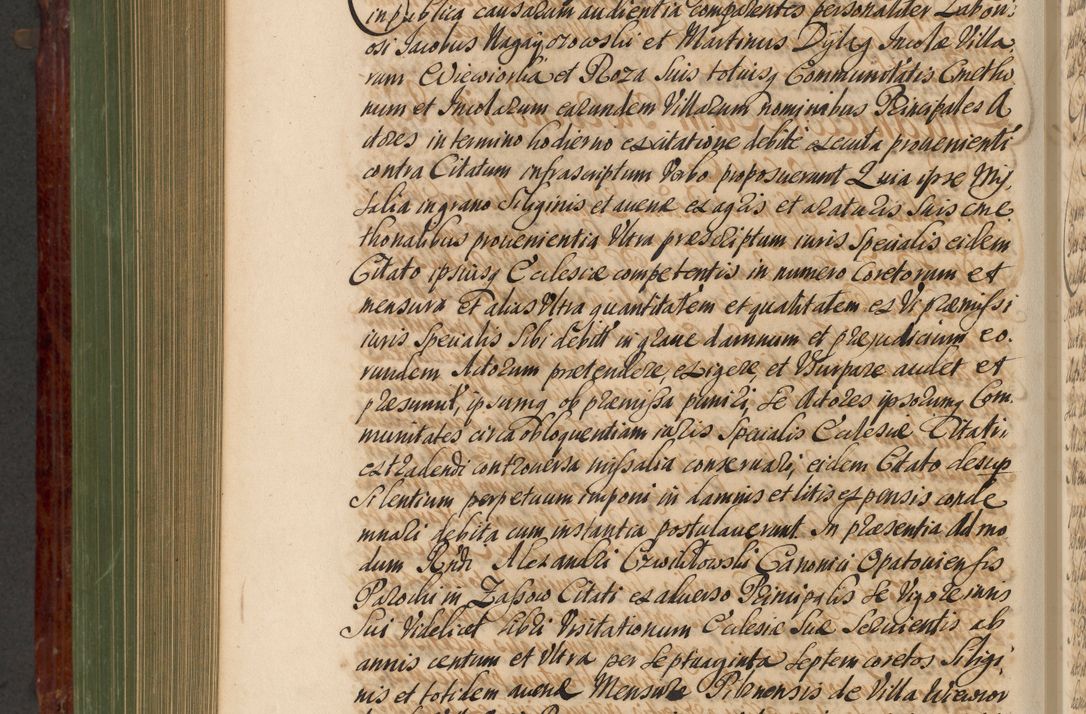 in publica causarum audientia comparentes personaliter Labori:
osi Jacobus Nagayorowski et Martinus Dyląg Incolæ Villa
rum Wiewiorka et Roza suis totiusq Communitatis Cmetho
num et Incolarum earundem Villarum nominibus Principales A
ctores in termino hodierno ex citatione debite executa provenienti
contra Citatum infrascriptum Verbo proposuerunt Quia ipse Mis
salia in grano siliginis et avenæ ex agris et araturis suis cme
thonalibus provenientia Ultra præscriptum iuris specialis eidem
Citato ipsiusq Ecclesiæ competentis in numero Coretorum et
mensura et alias Ultra quantitatem et qualitatem ex Vi præmissi
iuris specialis sibi debit in grave damnum et præjudicium eo:
rundem Actorum prætendere exigere et Usurpare audet et
præsumit, ipsumq ob præmissa puniri, se Actores ipsorumq Com
munitates circa obloquentiam iuris specialis Ecclesiæ Citati,
extradendi controversa missalia conservari, eidem Citato desup
silentium perpetuum imponi in damnis et litis expensis conde
mnari debita cum instantia postulaverunt. In præsentia Admo
dum Rndi Alexandri Cwiklowski Canonici Opatoviensis
Parochi in Zassow Citati ex adverso Principalis se Vigore iuris
sui Videlicet libri Visitationum Ecclesiæ suæ servientis ab
annis centum et Ultra per septuaginta septem coretos siligi
nis et totidem avenæ Mensuræ Pilznensis de Villa Wiewior